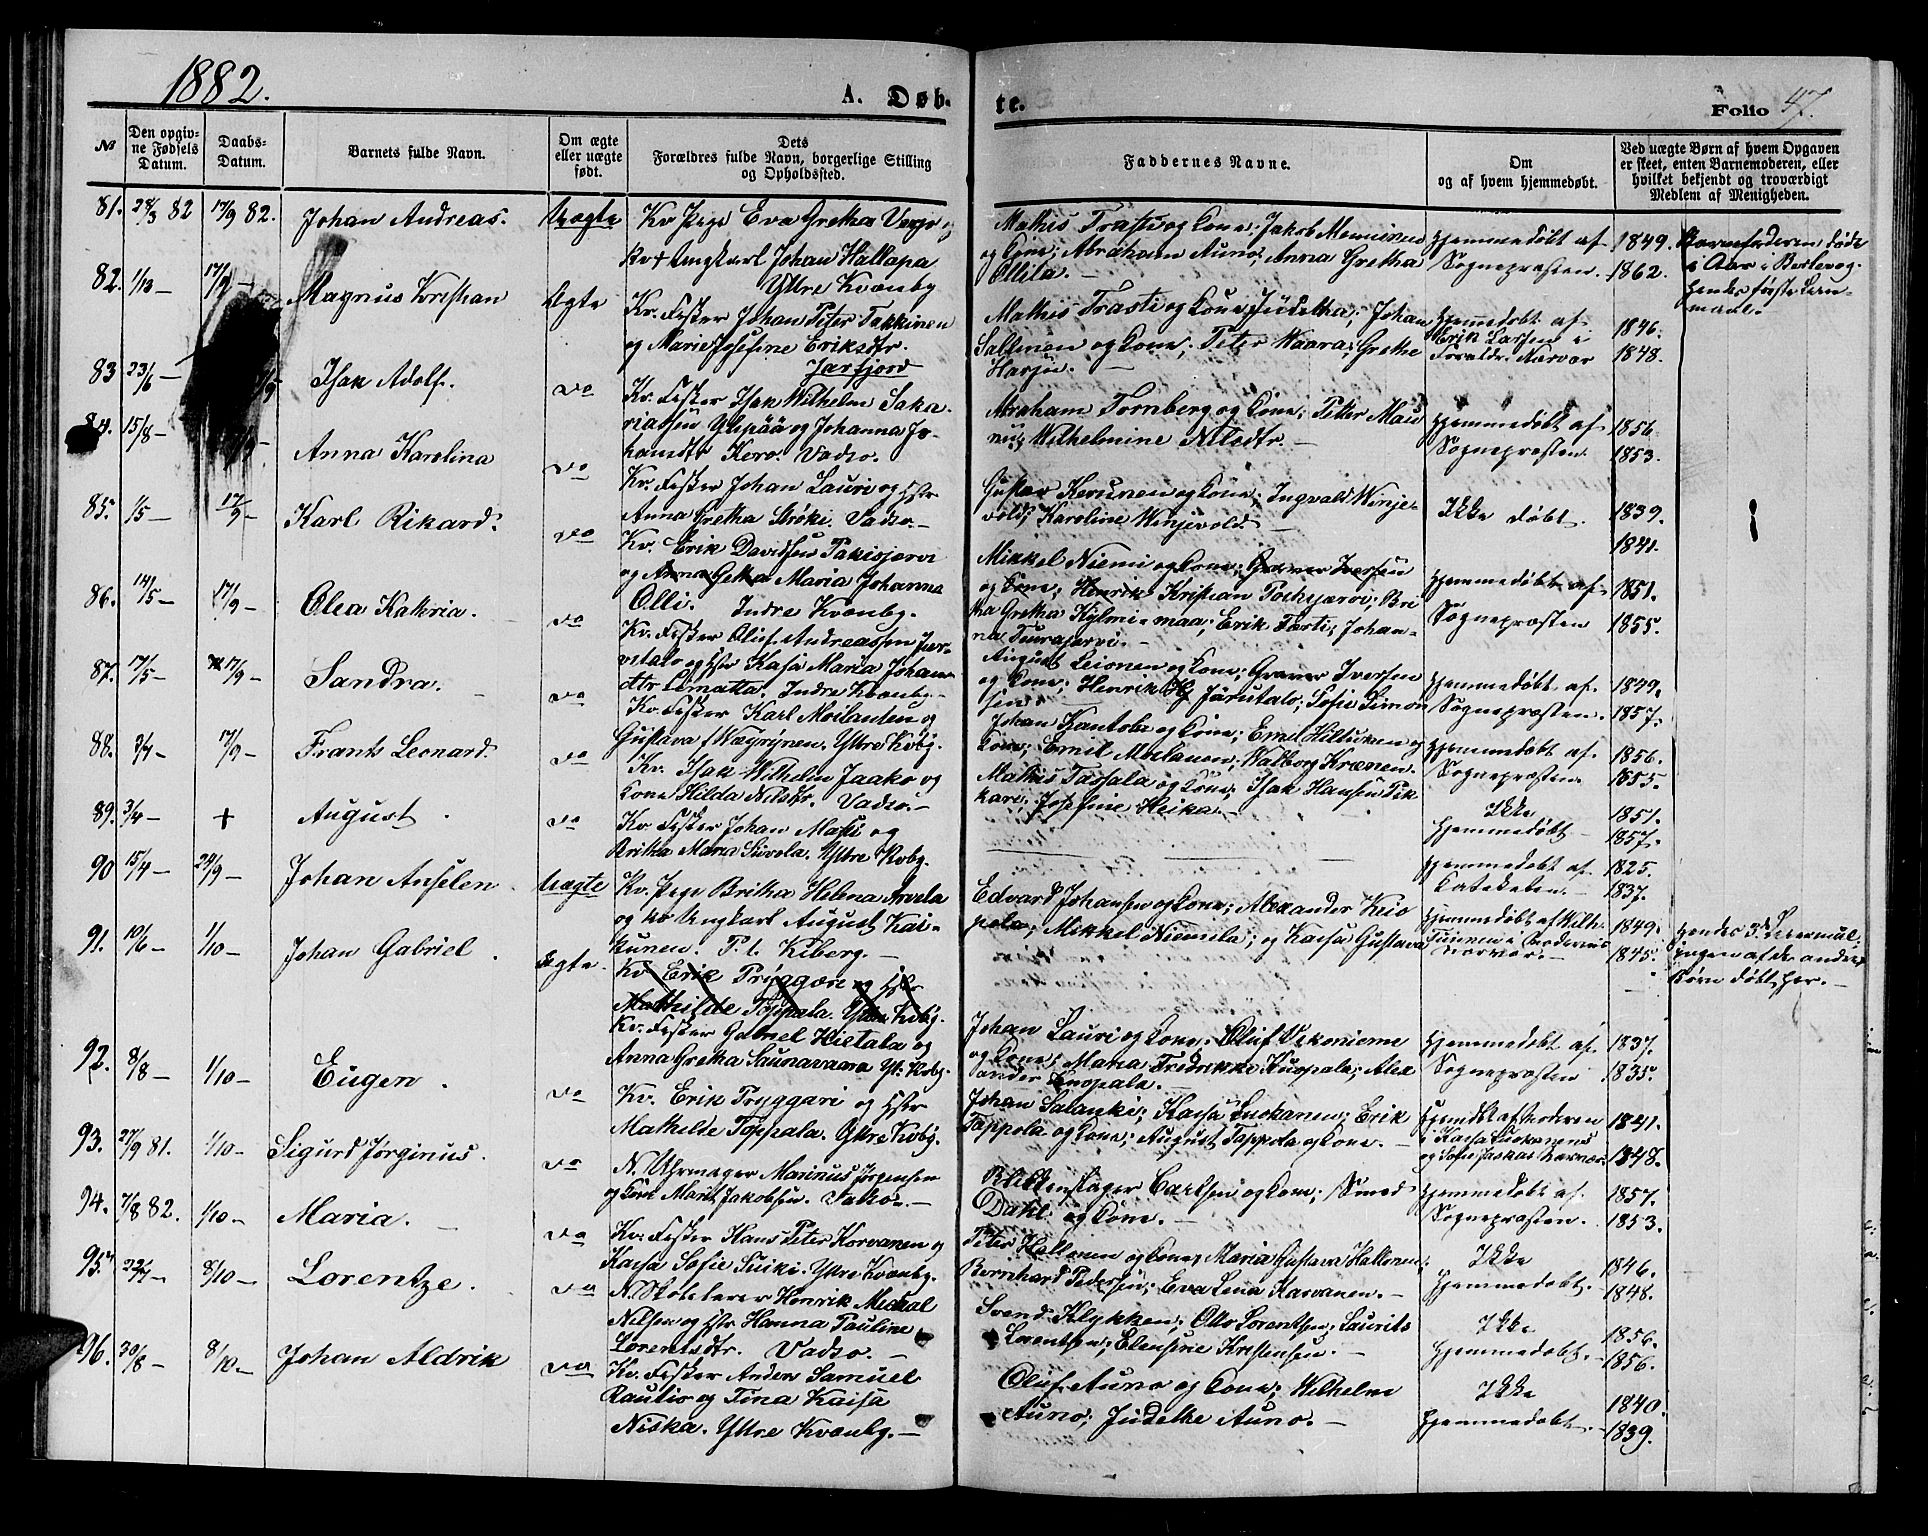 1882.
A. Døb-
te.
Folio 47.
№
Den opgiv-
ne Fødsels
Datum.
Daabs-
Datum.
Barnets fulde Navn.
Om ægte
eller uægte
født.
Dets
Forældres fulde Navn, borgerlige Stilling
og Opholdssted.
Faddernes Navne.
Om
og af hvem hjemmedøbt.
Ved uægte Børn af hvem Opgaven
er skeet, enten Barnemoderen, eller
hvilket bekjendt og troværdigt
Medlem af Menigheden.
81. 28/3 82 17/9 82. Johan Andreas. Uægte
Kv. Pige Eva Gretha
Kv + Ungkarl Johan Hallapa
Yttre Kvænby
Mathis Trasti og Kone; Jakob
og Kone; Abraham Auno; Anna Gretha
Ollila. -
Hjemmedøbt af
Sognepræsten.
1849.
1862.
Barnefaderen døde
i Aar i Berlevog.
Hendes første Leier-
maal.
82. 1/13 - 17/9 - Magnus Kristian Ægte
Kv. Fisker Johan Peter Takkinen
og Marie Josefine Eriksdtr.
Jarfjord
Mathis Trasti og Kone, Judetha; Johan
Sallinen og Kone; Peter Waara; Grethe
Harju. -
Hjemmedøbt af
Erik Larsen i
Foraldr. Nærvær
1846.
1848.
83 23/6 - Isak Adolf. do
Kv. Fisker Isak Wilhelm Saka-
riassen Ylipää og Johanna Jo-
hansdtr Kero. Vadsø.
Abraham Tornberg og Kone; Peter Mau
nu; Wilhelmine Nilsdtr. -
Hjemmedøbt af
Sognepræsten
1856.
1853.
84. 15/8 - Anna Karolina do
Kv. Fisker Johan Lauri og Hstr
Anna Gretha Vadsø. -
Gustav Kerunen og Kone; Ingvald Winje-
vold; Karoline Winjevold -
Ikke døbt.
1839.
1841.
85. 1/5 - 17/9 - Karl Rikard. do
Kv. Erik Davidsen Pakisjærvi
og Anna Getha Maria Johanna
Olli. Indre Kvænby.
Mikkel Niemi og Kone; Graver Iversen
og Kone; Henrik Kristian Pochyærvi; Bri
tha Gretha Kylmä-maa; Erik Tarti; Johan-
na
Hjemmedøbt af
Sognepræsten
1851.
1855.
86. 14/5 - 17/9 - Olea Kathria. do
Kv. Fisker Oluf Andreassen Jær-
vitalo og Hstr Kaisa Maria Johans-
dtr Limatta. Indre Kvænby. -
August Leionen og Kone; Graver Iversen
og Kone; Henrik Järvitalo; Sofie Simon
sen.
Hjemmedøbt af
Sognepræsten.
1849.
1857.
87. 17/5 - 17/9 - Sandra. - do
Kv. Fisker Karl Moilanten og
Gustava f Wægrynen. Yttre Kvbg.
Johan Kantola og Kone; Erik Hiltunen og
Kone; Emil Moilanen; Walborg Krænen.
Hjemmedøbt af
Sognepræsten.
1856.
1855.
88. 3/4 - 17/9 - Frants Leonard. do
Kv. Isak Wilhelm Jaako og
Kone Hilda Nilsdtr. Vadsø. -
Mathis Tassala og Kone; Isak Hansen Pik
kare; Josefine Heika. -
Ikke
Hjemmedøbt -
1851.
1857.
89. 3/4 - + August . do
Kv Fisker Johan Maki og
Britha Maria Siivola. Yttre Kvbg.
Hjemmedøbt af
Kateketen. -
1825.
1837.
90 15/4 - 24/9 - Johan Anselen . Uægte
Kv. Pige Britha Helena Arvela
og Kv Ungkarl August Kai-
kunen. P. t. Kiberg. -
Edvard Johansen og Kone; Alexander Keis
pala; Mikkel Niemela; og Kaisa Gustava
Hjemmedøbt af Wilh.
Tuinen i Moderens
nærvær. -
1849.
1845.
Hendes 3die Leiermaal.
Ingen af de andre
Børn døbt her. -
91. 10/6 - 1/10 - Johan Gabriel . Ægte.
Kv Erik Pryggari og Hstr
Mathilde Toppala. Yttre Kvbg.
Kv. Fisker Gabriel Hietala og
Anna Gretha Saunavaara Yt. Kvbg.
Johan Lauri og Kone; Oluf Ukoniemi
og Kone; Maria Fredrikke Kuopala; Alex
ander Kuopala. -
Hjemmedøbt af
Sognepræsten
1837.
1835.
92. 8/8 - 1/10 - Eugen . do
Kv. Erik Pryggari og Hstr
Mathilde Toppala. Yttre Kvbg.
Johan Salanki; Kaisa Luokanen; Erik
Tappola og Kone; August Tappola og Kone. -
Hjemdbt af Moderen
i Kaisa Luokanens
og Sofie Nærvær.
1841.
1848.
93. 27/9 81. 1/10 - Sigurd Jørginus. do
N. Uhrmager Marinus Jørgensen
og Kone Marit Jakobsen. Vadsø. -
Blikkenslager Carlsen og Kone; Smed
O Dahl og Kone. -
Hjemmedøbt af
Sognepræsten.
1857.
1853.
94. 7/8 82. 1/10 - Maria. - do
Kv. Fisker Hans Peter Korvanen og
Kaisa Sofie Yttre Kvænbg.
Peter Hallonen og Kone; Maria Gustava Hallonen;
Bernhard Pedersen; Eva Lena Karvanen. -
Ikke
Hjemmedøbt.
1846.
1848.
95. 22/7 - 8/10 - Lorentze . do
N. Skolelærer Henrik Mechal
Nilsen og Hstr Hanna Pauline
Lorentsdtr. Vadsø. -
Svend Klykken; Otto Lorentsen; Laurits
Lorentsen; Elenserie Kristensen. -
Ikke
Hjemmedøbt. -
1856.
1856.
96. 30/8 - 8/10 - Johan Aldrik do
Kv. Fisker Anders Samuel
Rautio og Tina Kaisa
Niska. Yttre Kvænbg. -
Oluf Auno og Kone; Wilhelm
Auno; Judethe Auno. -
Ikke
Hjemmedøbt. -
1840.
1839.